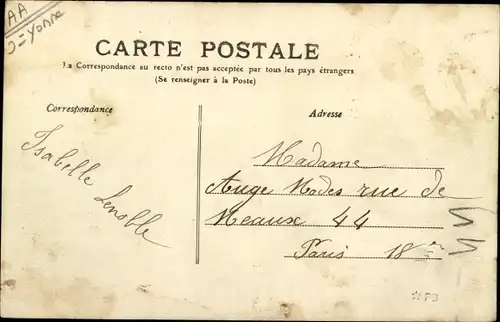 AA
D=Yonne
CARTE POSTALE
La Correspondance au recto n'est pas acceptée par tous les pays étrangers
(Se renseigner à la Poste)
Correspondance
Adresse
Isabelle Lenoble
Madame
Auge Modes rue de
Meaux 44
Paris 18e